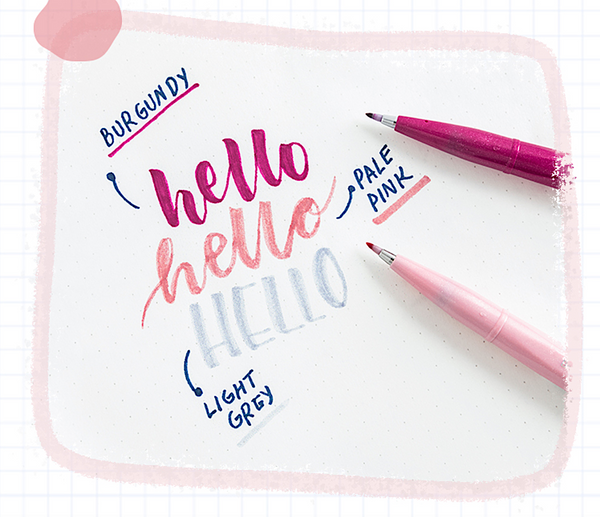 BURGUNDY
hello
PALE
PINK
hello
HELLO
LIGHT
GREY